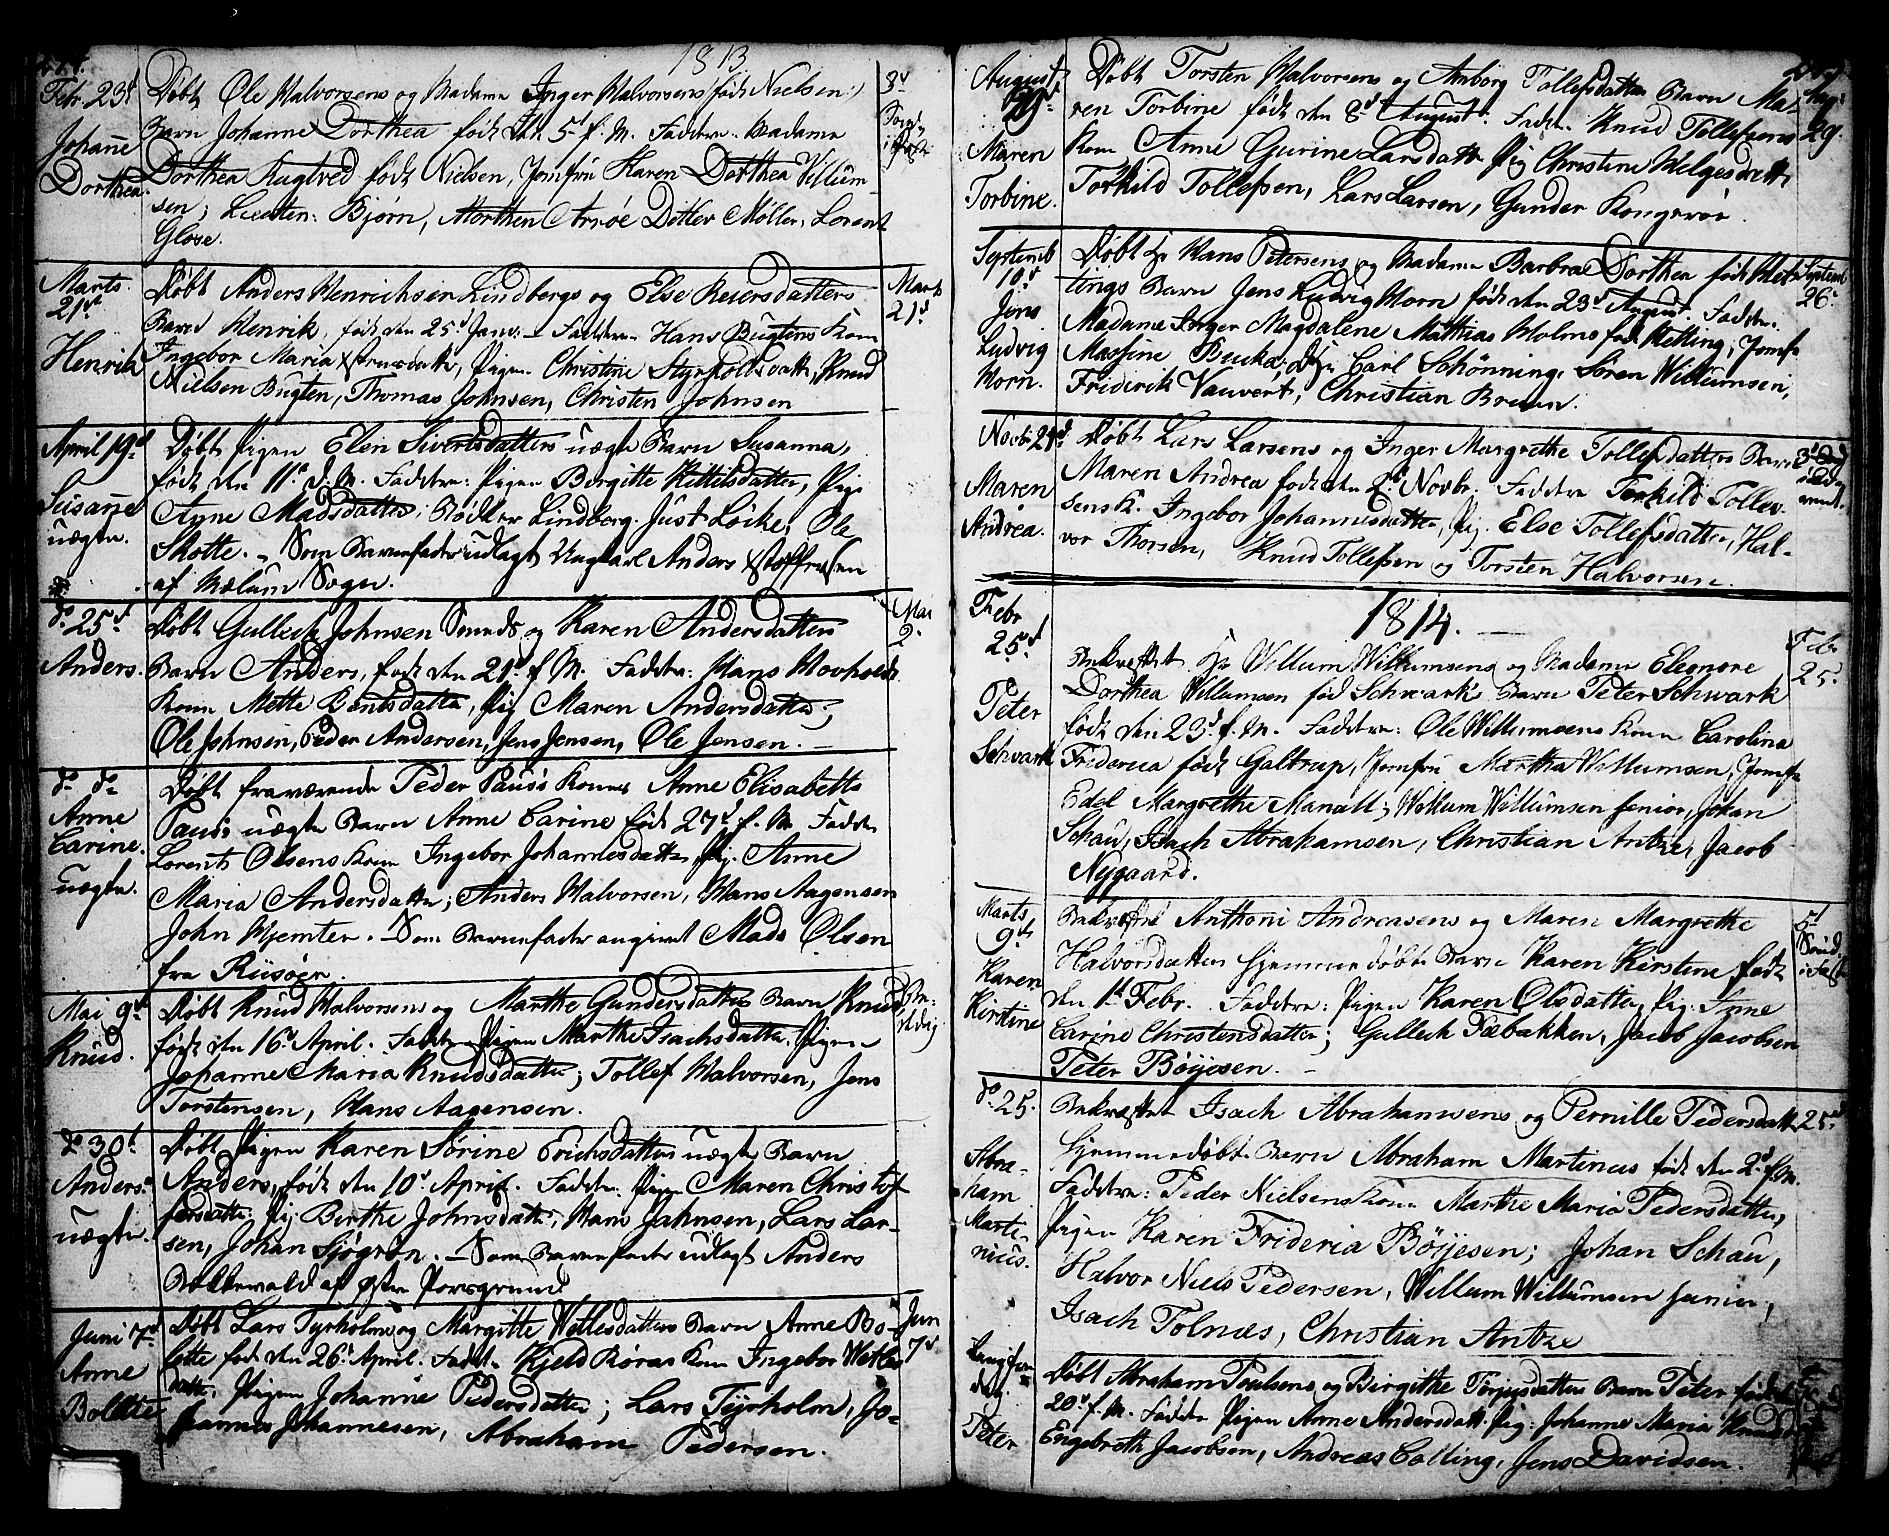 1813
Febr. 23d
Johanne
Dorthea.
Døbt Ole Halvorsens og Madame Inger Halvorsens (født Nielsen:)
Barn Johanne Dorthea født den 5d f. M. Faddere: Madame
Dorthea Rugtved født Nielsen, Jomfrü Karen Dorthea Willum-
sen; Bjørn, Morthen Detlev Møller, Lorent
Glose.
3d
i Fast
Marts
21d
Henrik
Døbt Anders Henrichsen Lindbergs og Else Reiersdatters
Barn Henrik, født den 25d Janv: Faddere Hans Bugtens Kone
Ingebor Maria Pigen Christine Styrkolsdatter, Knud
Nielsen Bugten, Thomas Johnsen, Christen Johnsen
Marts
21d
April 19d
Susanne
uægte.
Døbt Pigen Elen Sivertsdatters uægte Barn Susanna,
født den 11d d. M. Faddere: Pigen Birgitte Kittilsdatter, Pig.
Anne Madsdatter; Bødker Lindberg. Just Loike, Ole
Skotte. Som Barnefader udlagt Ungkarl Anders Stoffersen
af Mælum Sogn.
do 25d
Anders.
Døbt Gullech Johnsen Smeds og Karen Andersdatters
Barn Anders, født den 21d f. M. Faddere: Hans Hovholts
Kone Mette Bentsdatter, Pig Maren Andersdatter;
Ole Johnsen, Peder Andersen, Jens Jensen, Ole Jensen.
Mai
2.
do do
Anne
Carine.
uægte.
Døbt fraværende Peder Pauss Kones Anne Elisabeths
Pauss uægte Barn Anne Carine født 27d f. M. Faddere
Lorents Olsens Kone Ingebor Johannesdatter, Pig. Anne
Maria Andersdatter; Anders Halvorsen, Hans Aagensen
John Hjemter. Som Barnefader angivet Mads Olsen
fra Riisöer.
Mai 9d
Knud.
Døbt Knud Halvorsens og Marthe Gundersdatters Barn Knud
født den 16d April. Faddere Pigen Marthe Isachsdatter, Pigen
Johanne Maria Knudsdatter; Tollef Halvorsen, Jens
Torstensen, Hans Aagensen.
do 30d
Anders
uægte.
Døbt Pigen Karen Sørine Erichsdatters uægte Barn
Anders, født den 10d April. Faddere: Pigen Maren Christof
fersdatter Pig. Birthe Johnsdatter, Hans Jahnsen, Lars Lar-
sen, Johan Sjøgren. Som Barnefader udlagt Anders
af Østre Porsgrund
Juni 7d
Anne
Bolette
Døbt Lars Tyrholms og Margitte Wetlesdatters Barn Anne Bo-
lette født den 26d April. Fadd. Kjeld Röras Kone Ingebor Wetles
datter, Pigen Johanne Pedersdatter; Lars Tyrholm, Jo-
hannes Johannesen, Abraham Pedersen.
Jun
7d
August
29d
Maren
Torbine.
Døbt Torsten Halvorsens og Anborg Tollefsdatters Barn Ma-
ren Torbine født den 8d August. Fadd. Knud Tollefsens
Kone Anne Gurine Larsdatter Pig Christine Helgesdatter
Torkild Tollefsen, Lars Larsen, Gunder Kongerød.
Aug.
29.
Septemb
10d
Jens
Ludvig
Horn.
Døbt Hr Hans Petersens og Madame Barbra Dorthea født Klot
tings Barn Jens Ludvig Horn født den 23d August. Faddere.
Madame Inger Magdalene Mathias Holms født Kletting, Jomfr
Massine Bucka; Carl Schønning, Søren Willumsen,
Friderik Vauvert, Christian Bruun.
Septemb
26.
Novbr 21d
Maren
Andrea.
Døbt Lars Larsens og Inger Margrethe Tollefsdatters Barn
Maren Andrea født den 2d Novbr. Faddere Torkild Tollev
sens K. Ingebor Johannesdatter, Pig. Else Tollefsdatter, Hal-
vor Thorsen, Knud Tollefsen og Torsten Halvorsen.
1814.
Febr
25d
Peter
Schwark
Bekræftet Hr Willum Willumsens og Madame Eleonore
Dorthea Willumsen fød Schwark Barn Peter Schwark
født den 23d f. M. Faddere: Ole Willumsens Kone Carolina
Frideria født Galtrup, Jomfru Martha Willumsen, Jomfr
Edel Margrethe Manall; Willum Willumsen senior, Johan
Schau, Isach Abrahamsen, Christian Antze, Jacob
Nygaard.
Febr
25d
Marts
9d
Karen
Kirstine
Bekræftet Anthoni Andreasens og Maren Margrethe
Halvorsdatters hjemmedøbte Barn Karen Kirstine født
den 1d Febr. Faddere: Pigen Karen Olsdatter, Pig. Anne
Carine Christensdatter; Gullech Fæbakken, Jacob Jacobsen
Peter Böyesen.
5d
i Fast
do 25.
Abra-
ham
Marti-
nius.
Bekræftet Isach Abrahamsens og Pernille Pedersdatters
hjemmedøbte Barn Abraham Martinus født den 2d f. M.
Faddere: Peder Nielsens Kone Marthe Maria Pedersdatter,
Pigen Karen Frideria Böyesen; Johan Schau,
Halvor Niels Pedersen, Willum Willumsen junior,
Isach Tolnæs, Christian Antze
25d
Langfre
dag.
Peter
Døbt Abraham Poulsens og Birgithe Torjusdatters Barn Peter født d
20d f. M. Faddere Pigen Anne Andersdatt. Pig: Johanne Maria Knudsd
Engebreth Jacobsen, Andreas Colling, Jens Davidsen.